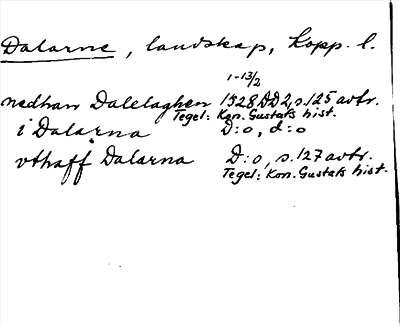 Dalarne, landskap, Kopp. l.
1-13/2
nedhan Dalelaghen 1528 DD2, s.125 avtr.
Tegel: Kon. Gustafs hist.
i Dalarna D:o, d:o
vthaff Dalarna D:o, s.127 avtr.
Tegel: Kon. Gustafs hist.